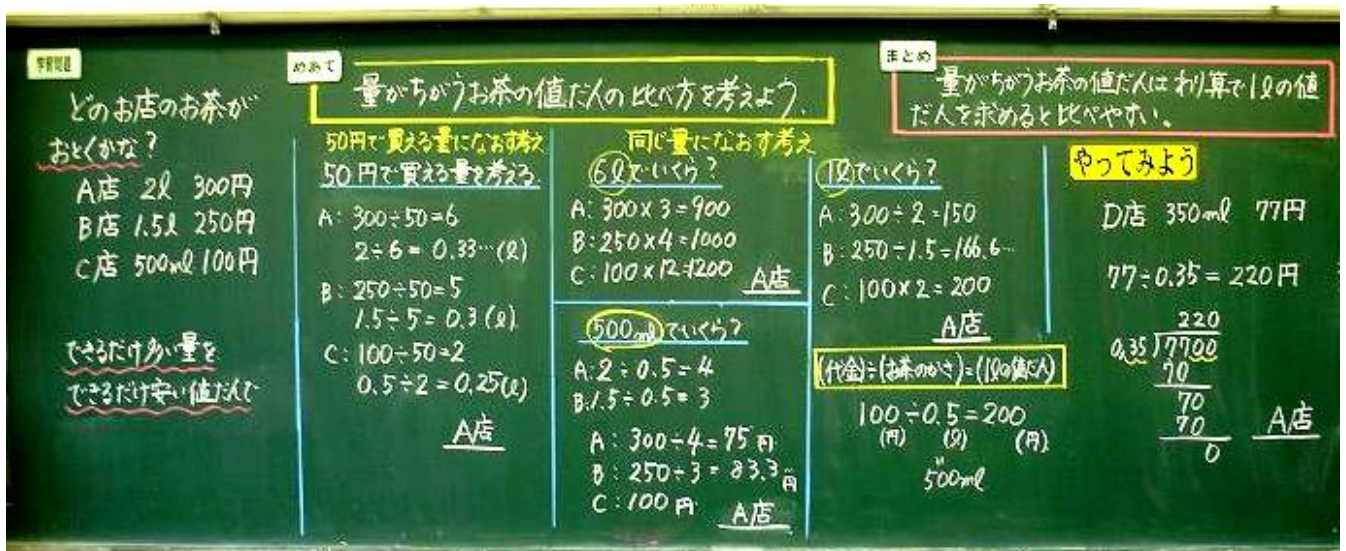 学習問題
どのお店のお茶が
おとくかな?
A店 2ℓ 300円
B店 1.5ℓ 250円
C店 500mℓ 100円
できるだけ多い量を
できるだけ安い値だんで
めあて
量がちがうお茶の値だんの比べ方を考えよう.
50円で買える量になおす考え
50円で買える量を考える
A: 300÷50=6
2÷6=0.33…(ℓ)
B: 250÷50=5
1.5÷5=0.3(ℓ)
C: 100÷50=2
0.5÷2=0.25(ℓ)
A店
同じ量になおす考え
6ℓでいくら?
A: 300×3=900
B: 250×4=1000
C: 100×12=1200
A店
500mℓでいくら?
A: 2÷0.5=4
B: 1.5÷0.5=3
A: 300÷4=75円
B: 250÷3=83.3…円
C: 100円
A店
1ℓでいくら?
A: 300÷2=150
B: 250÷1.5=166.6…
C: 100×2=200
A店
(代金)÷(お茶のかさ)=(1ℓの値だん)
100÷0.5=200
(円) (ℓ) (円)
〃
500mℓ
まとめ
量がちがうお茶の値だんはわり算で1ℓの値
だんを求めると比べやすい。
やってみよう
D店 350mℓ 77円
77÷0.35=220円
220
0.35)7700
70
70
70
0
A店